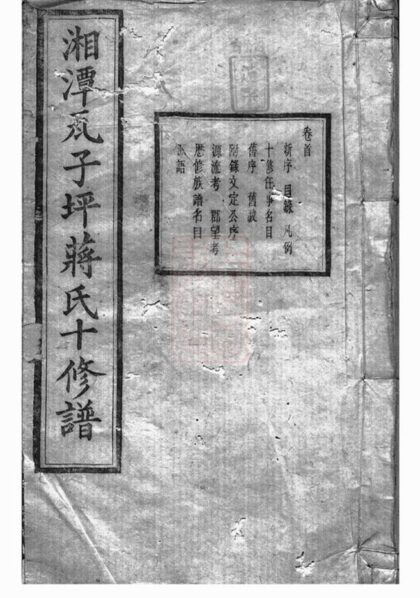 湘潭瓦子坪蔣氏十修譜
卷首
新序 目錄 凡例
十修任事名目
舊序 舊跋
附錄文定公序
源流考 郡望考
歷修族譜名目
語